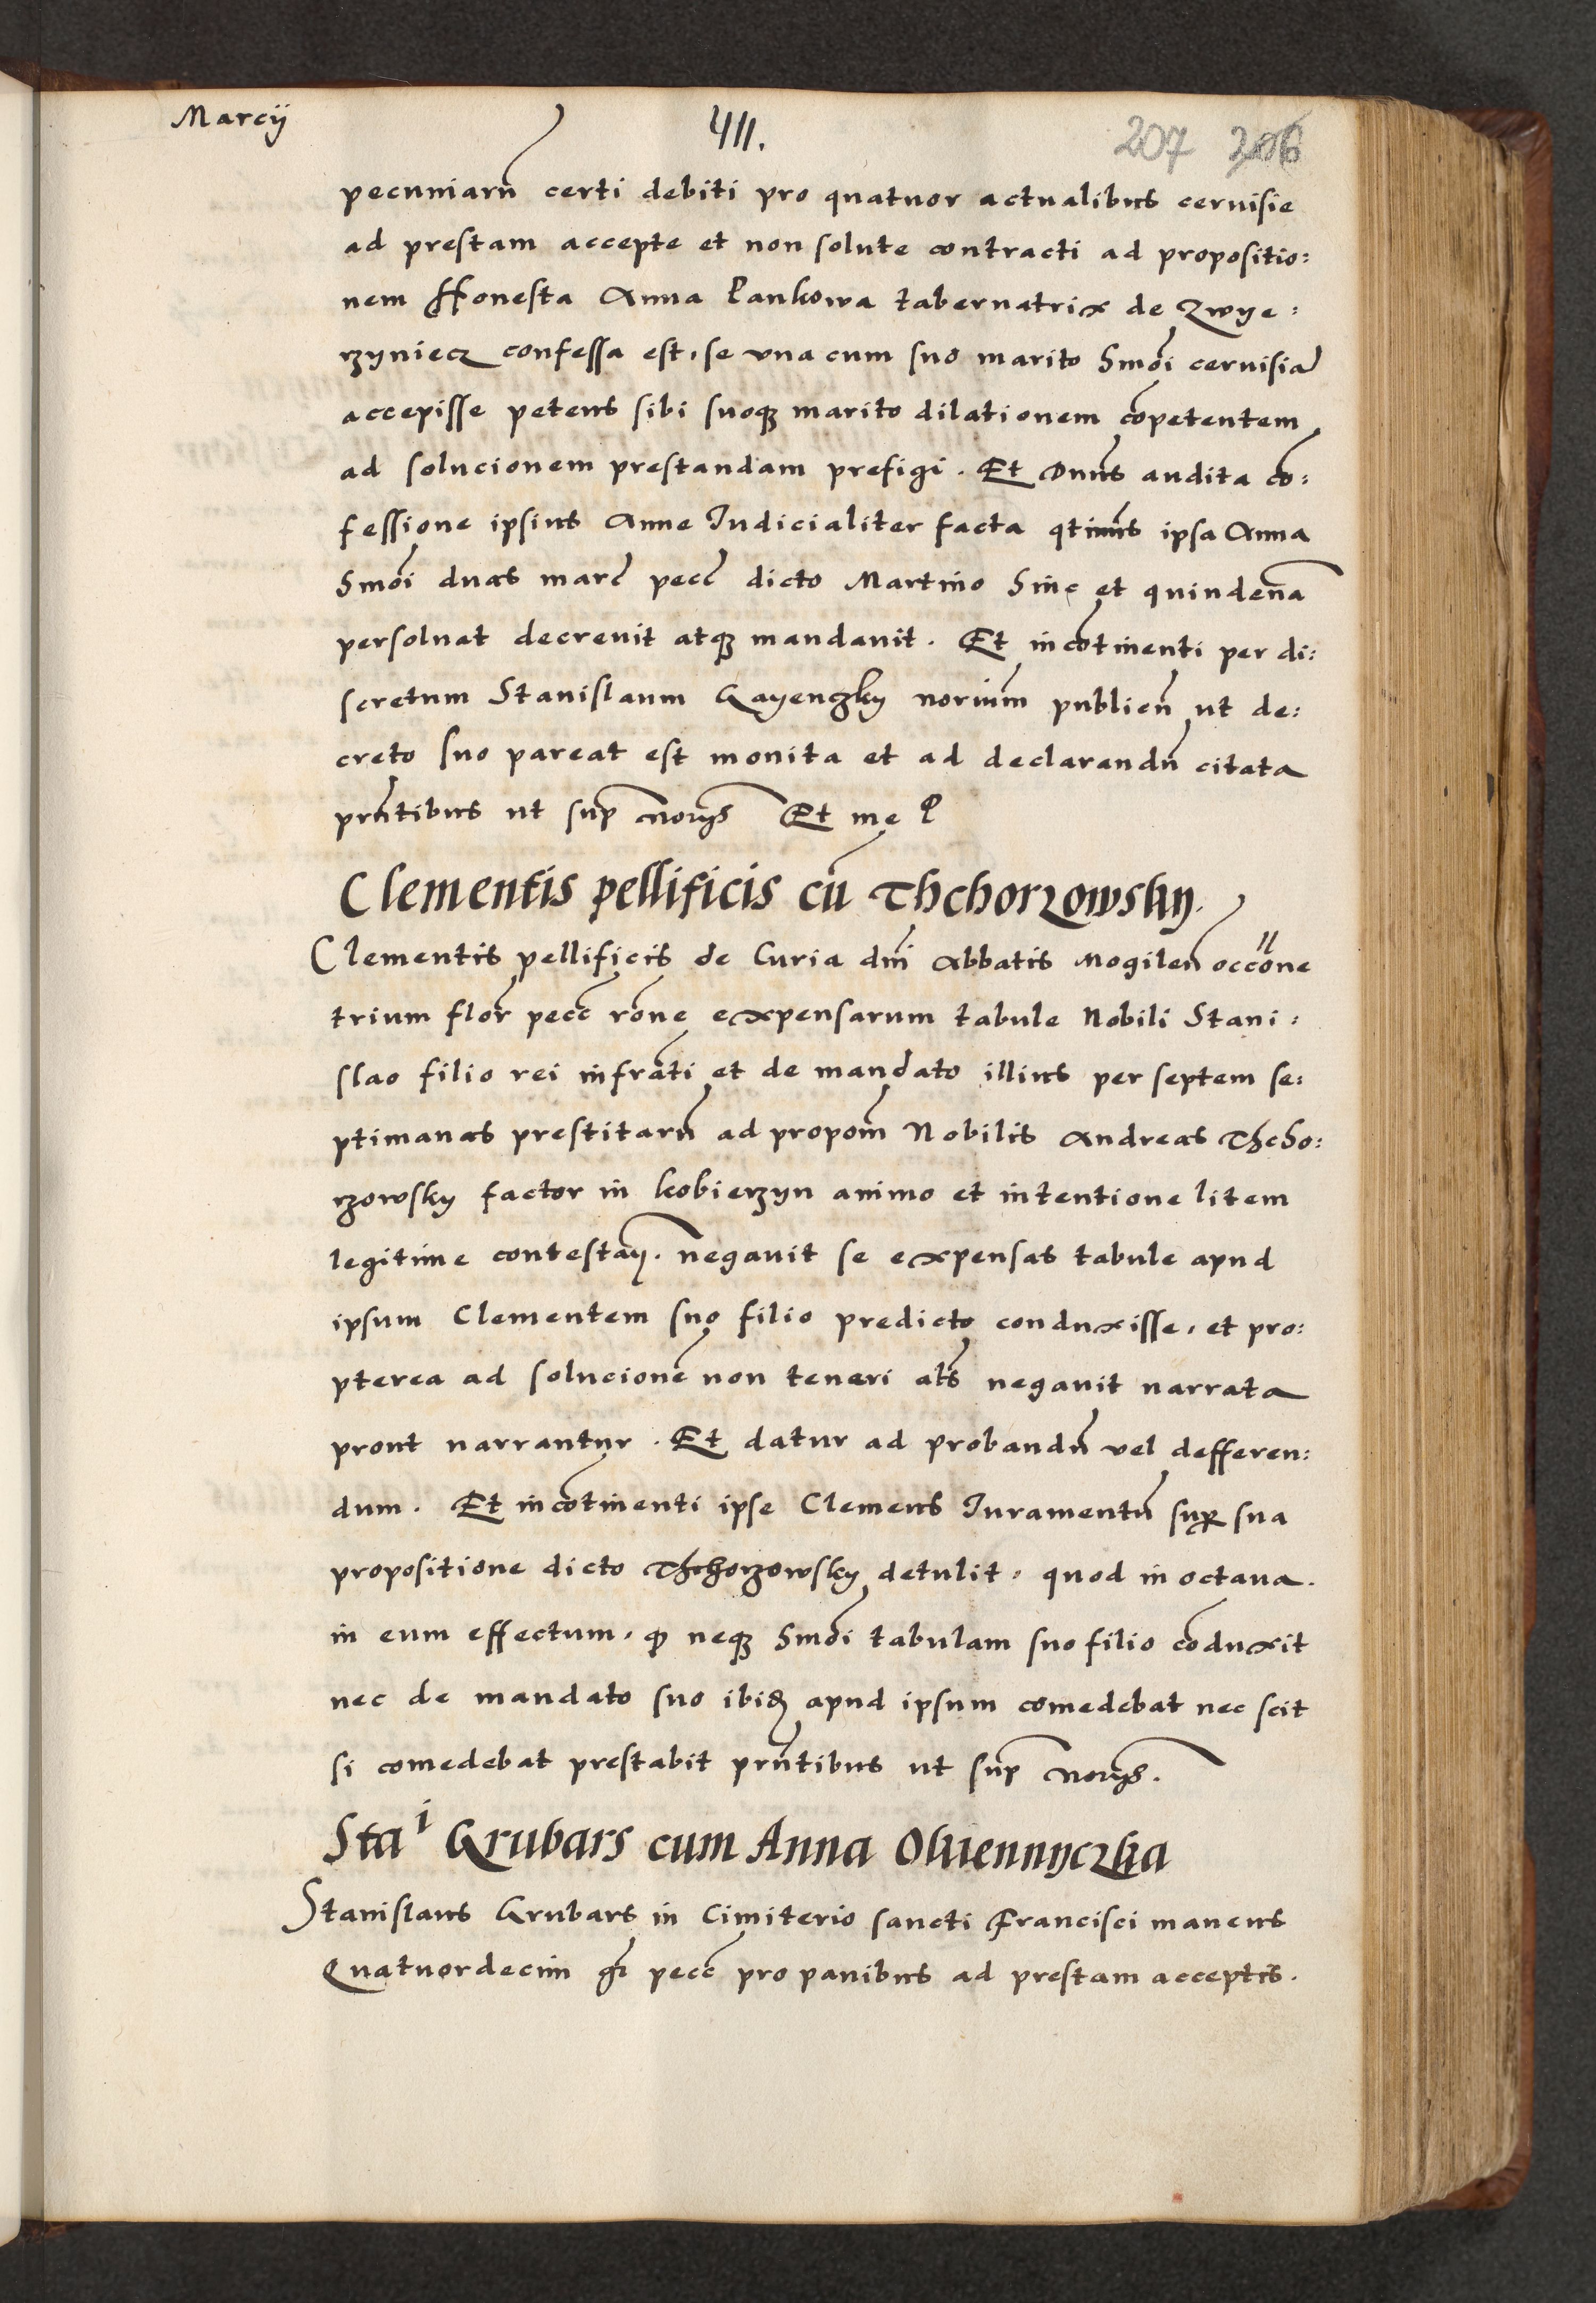 Marcij
411.
207 206
pecuniarũ certi debiti pro quatuor actualibus ceruisie
ad prestam accepte et non solute contracti ad propositio:
nem Honesta Anna Pankowa tabernatrix de Zwye:
rzyniecz confessa est, se vna cum suo marito Smõi ceruisiã
accepisse petens sibi suoqꝫ marito dilationem cõpetentem
ad solucionem prestandam prefigi. Et Dnus audita cõ:
fessione ipsius Anne Iudicialiter facta qtinus ipsa Anna
Smõi duas marc̃ pecc̃ dicto Martino hinc et quindenã
persoluat decreuit atqꝫ mandauit. Et incõtinenti per di:
scretum Stanislaum Gayenczky noriũm publicũ ut de:
creto suo pareat est monita et ad declarandũ citata
prñtibus ut sup̃ norijs Et me P
Clementis pellificis cũ Thchorzowsky.
Clementis pellificis de Curia dñi Abbatis Mogileñ occõne
trium flor̃ pecc̃ rõne expensarum tabule Nobili Stani:
slao filio rei infrãti et de mandato illius per septem se:
ptimanas prestitarũ ad propom̃ Nobilis Andreas Thcho:
rzowsky factor in kobierzyn animo et intentione litem
legitime contestañ. negauit se expensas tabule apud
ipsum Clementem suo filio predicto conduxisse, et pro:
pterea ad solucionẽ non teneri als̃ negauit narrata
prout narrantur. Et datur ad probandũ vel defferen:
dum. Et incõtinenti ipse Clemens Iuramentũ sup̱ sua
propositione dicto Thchorzowsky detulit, quod in octaua.
in eum effectum, ꝙ neqꝫ Smõi tabulam suo filio cõduxit
nec de mandato suo ibiđ apud ipsum comedebat nec scit
si comedebat prestabit prñtibus ut sup̃ norijs.
Staⁱ Grubars cum Anna Okiennyczka
Stanislaus Grubars in Cimiterio sancti Francisci manens
Quatuordecim gr̃ pecc̃ pro panibus ad prestam acceptis.